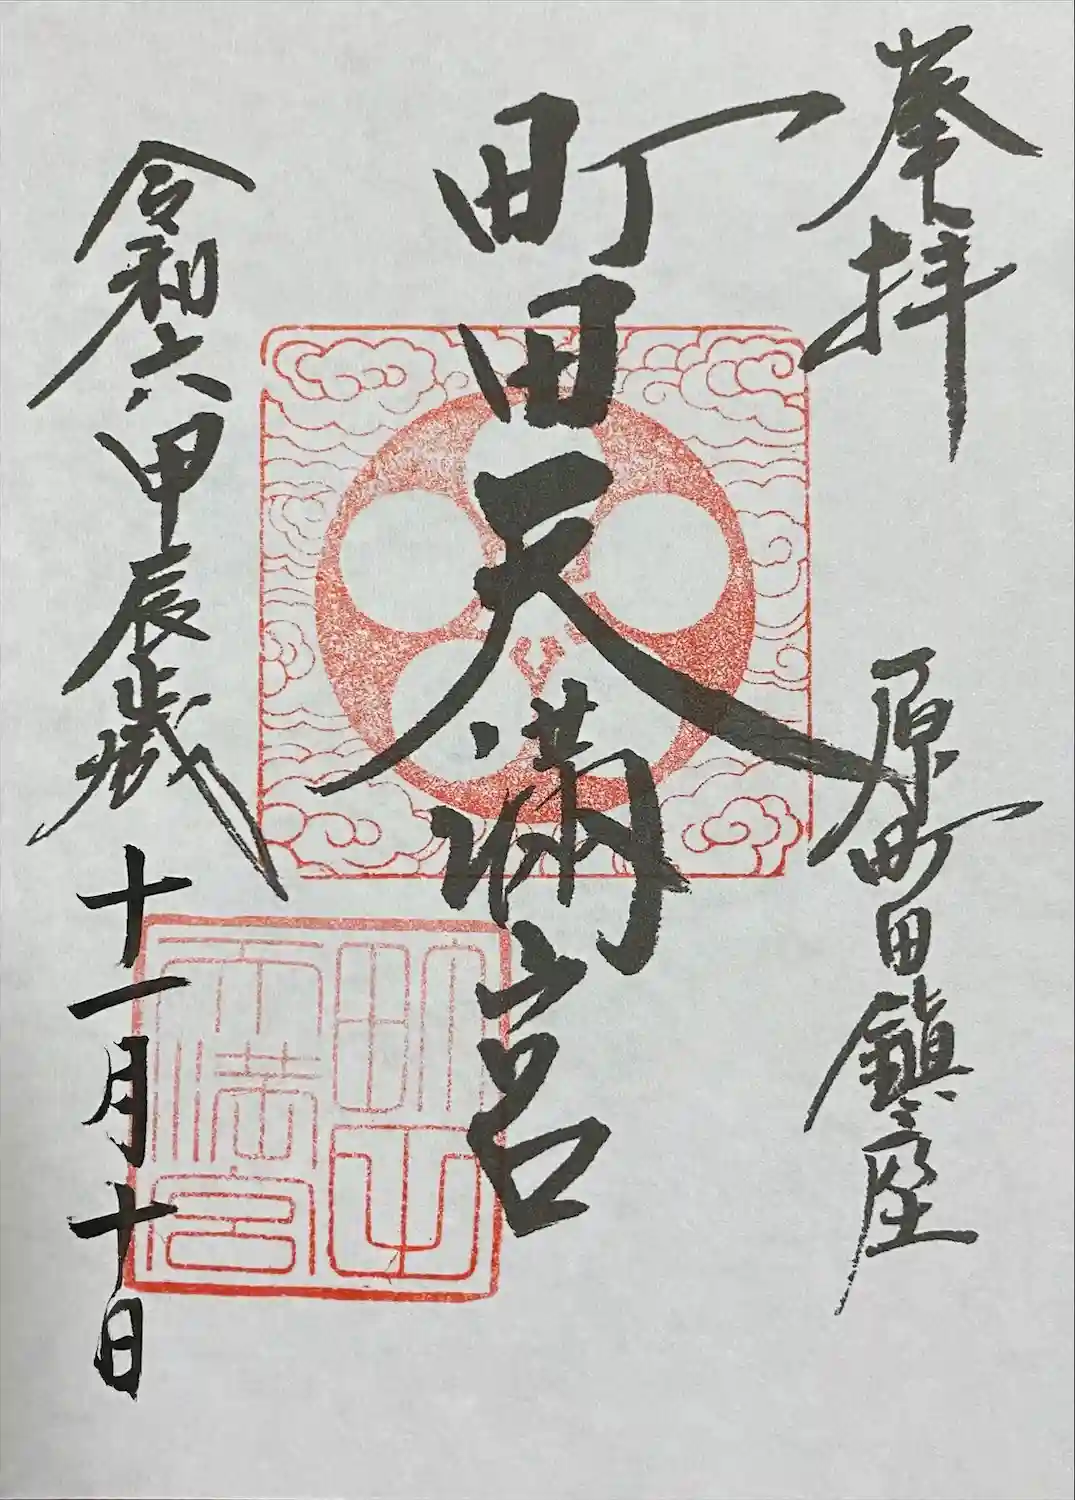 奉拝
原町田鎮座
町田天満宮
令和六甲辰歳十一月十日